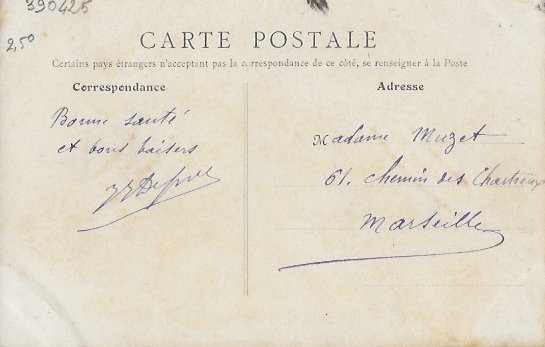 390425
2,50
CARTE POSTALE
Certains pays étrangers n'acceptant pas la correspondance de ce côté, se renseigner à la Poste
Correspondance
Bonne santé
et bons baisers
Adresse
Madame Muzet
61. chemin des Chartreux
Marseille